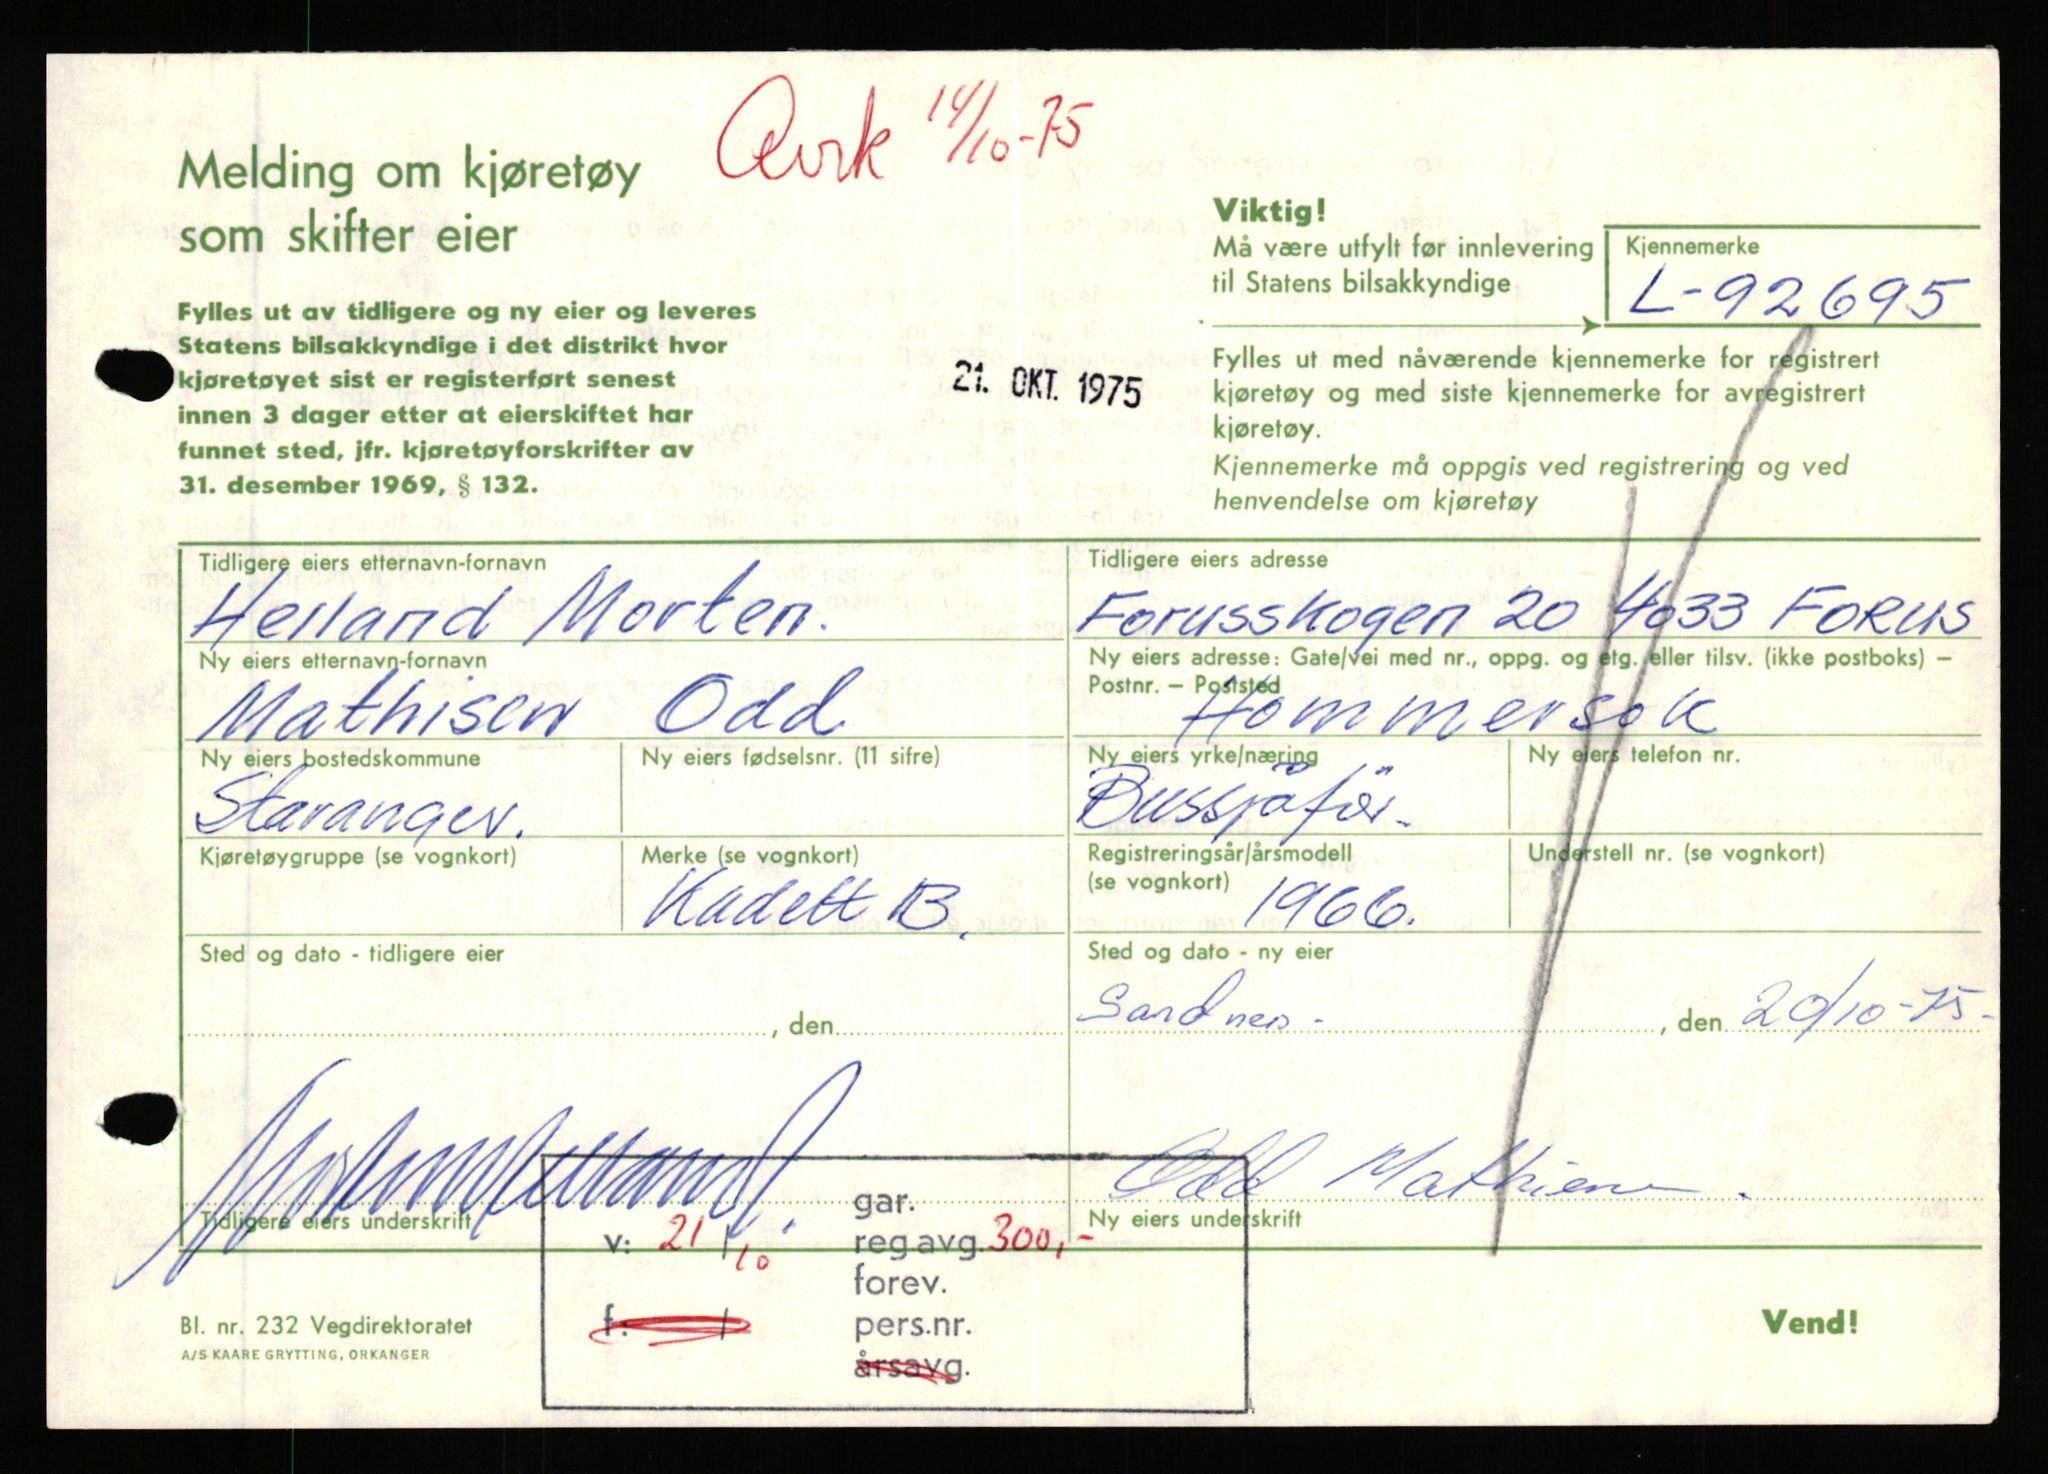 Avrk 14/10-75
Melding om kjøretøy
som skifter eier
Fylles ut av tidligere og ny eier og leveres
Statens bilsakkyndige i det distrikt hvor
kjøretøyet sist er registerført senest
innen 3 dager etter at eierskiftet har
funnet sted, jfr. kjøretøyforskrifter av
31. desember 1969, § 132.
21. OKT. 1975
Viktig!
Må være utfylt før innlevering
til Statens bilsakkyndige
Kjennemerke
L-92695
Fylles ut med nåværende kjennemerke for registrert
kjøretøy og med siste kjennemerke for avregistrert
kjøretøy.
Kjennemerke må oppgis ved registrering og ved
henvendelse om kjøretøy
Tidligere eiers etternavn-fornavn
Helland Morten.
Tidligere eiers adresse
Forusskogen 20 4033 FORUS
Ny eiers etternavn-fornavn
Mathisen Odd
Ny eiers adresse: Gate/vei med nr., oppg. og etg. eller tilsv. (ikke postboks) –
Postnr. – Poststed
Hommersok
Ny eiers bostedskommune
Stavanger.
Ny eiers fødselsnr. (11 sifre)
Ny eiers yrke/næring
Bussjåför.
Ny eiers telefon nr.
Kjøretøygruppe (se vognkort)
Merke (se vognkort)
Kadett B.
Registreringsår/årsmodell
(se vognkort)
1966.
Understell nr. (se vognkort)
Sted og dato - tidligere eier
, den
Sted og dato - ny eier
Sandnes. , den 20/10-75.
Morten Helland
Tidligere eiers underskrift
Odd Mathisen.
Ny eiers underskrift
gar.
v: 21/10 reg avg. 300,-
forev.
f: / pers.nr.
årsavg.
Bl. nr. 232 Vegdirektoratet
A/S KAARE GRYTTING, ORKANGER
Vend!